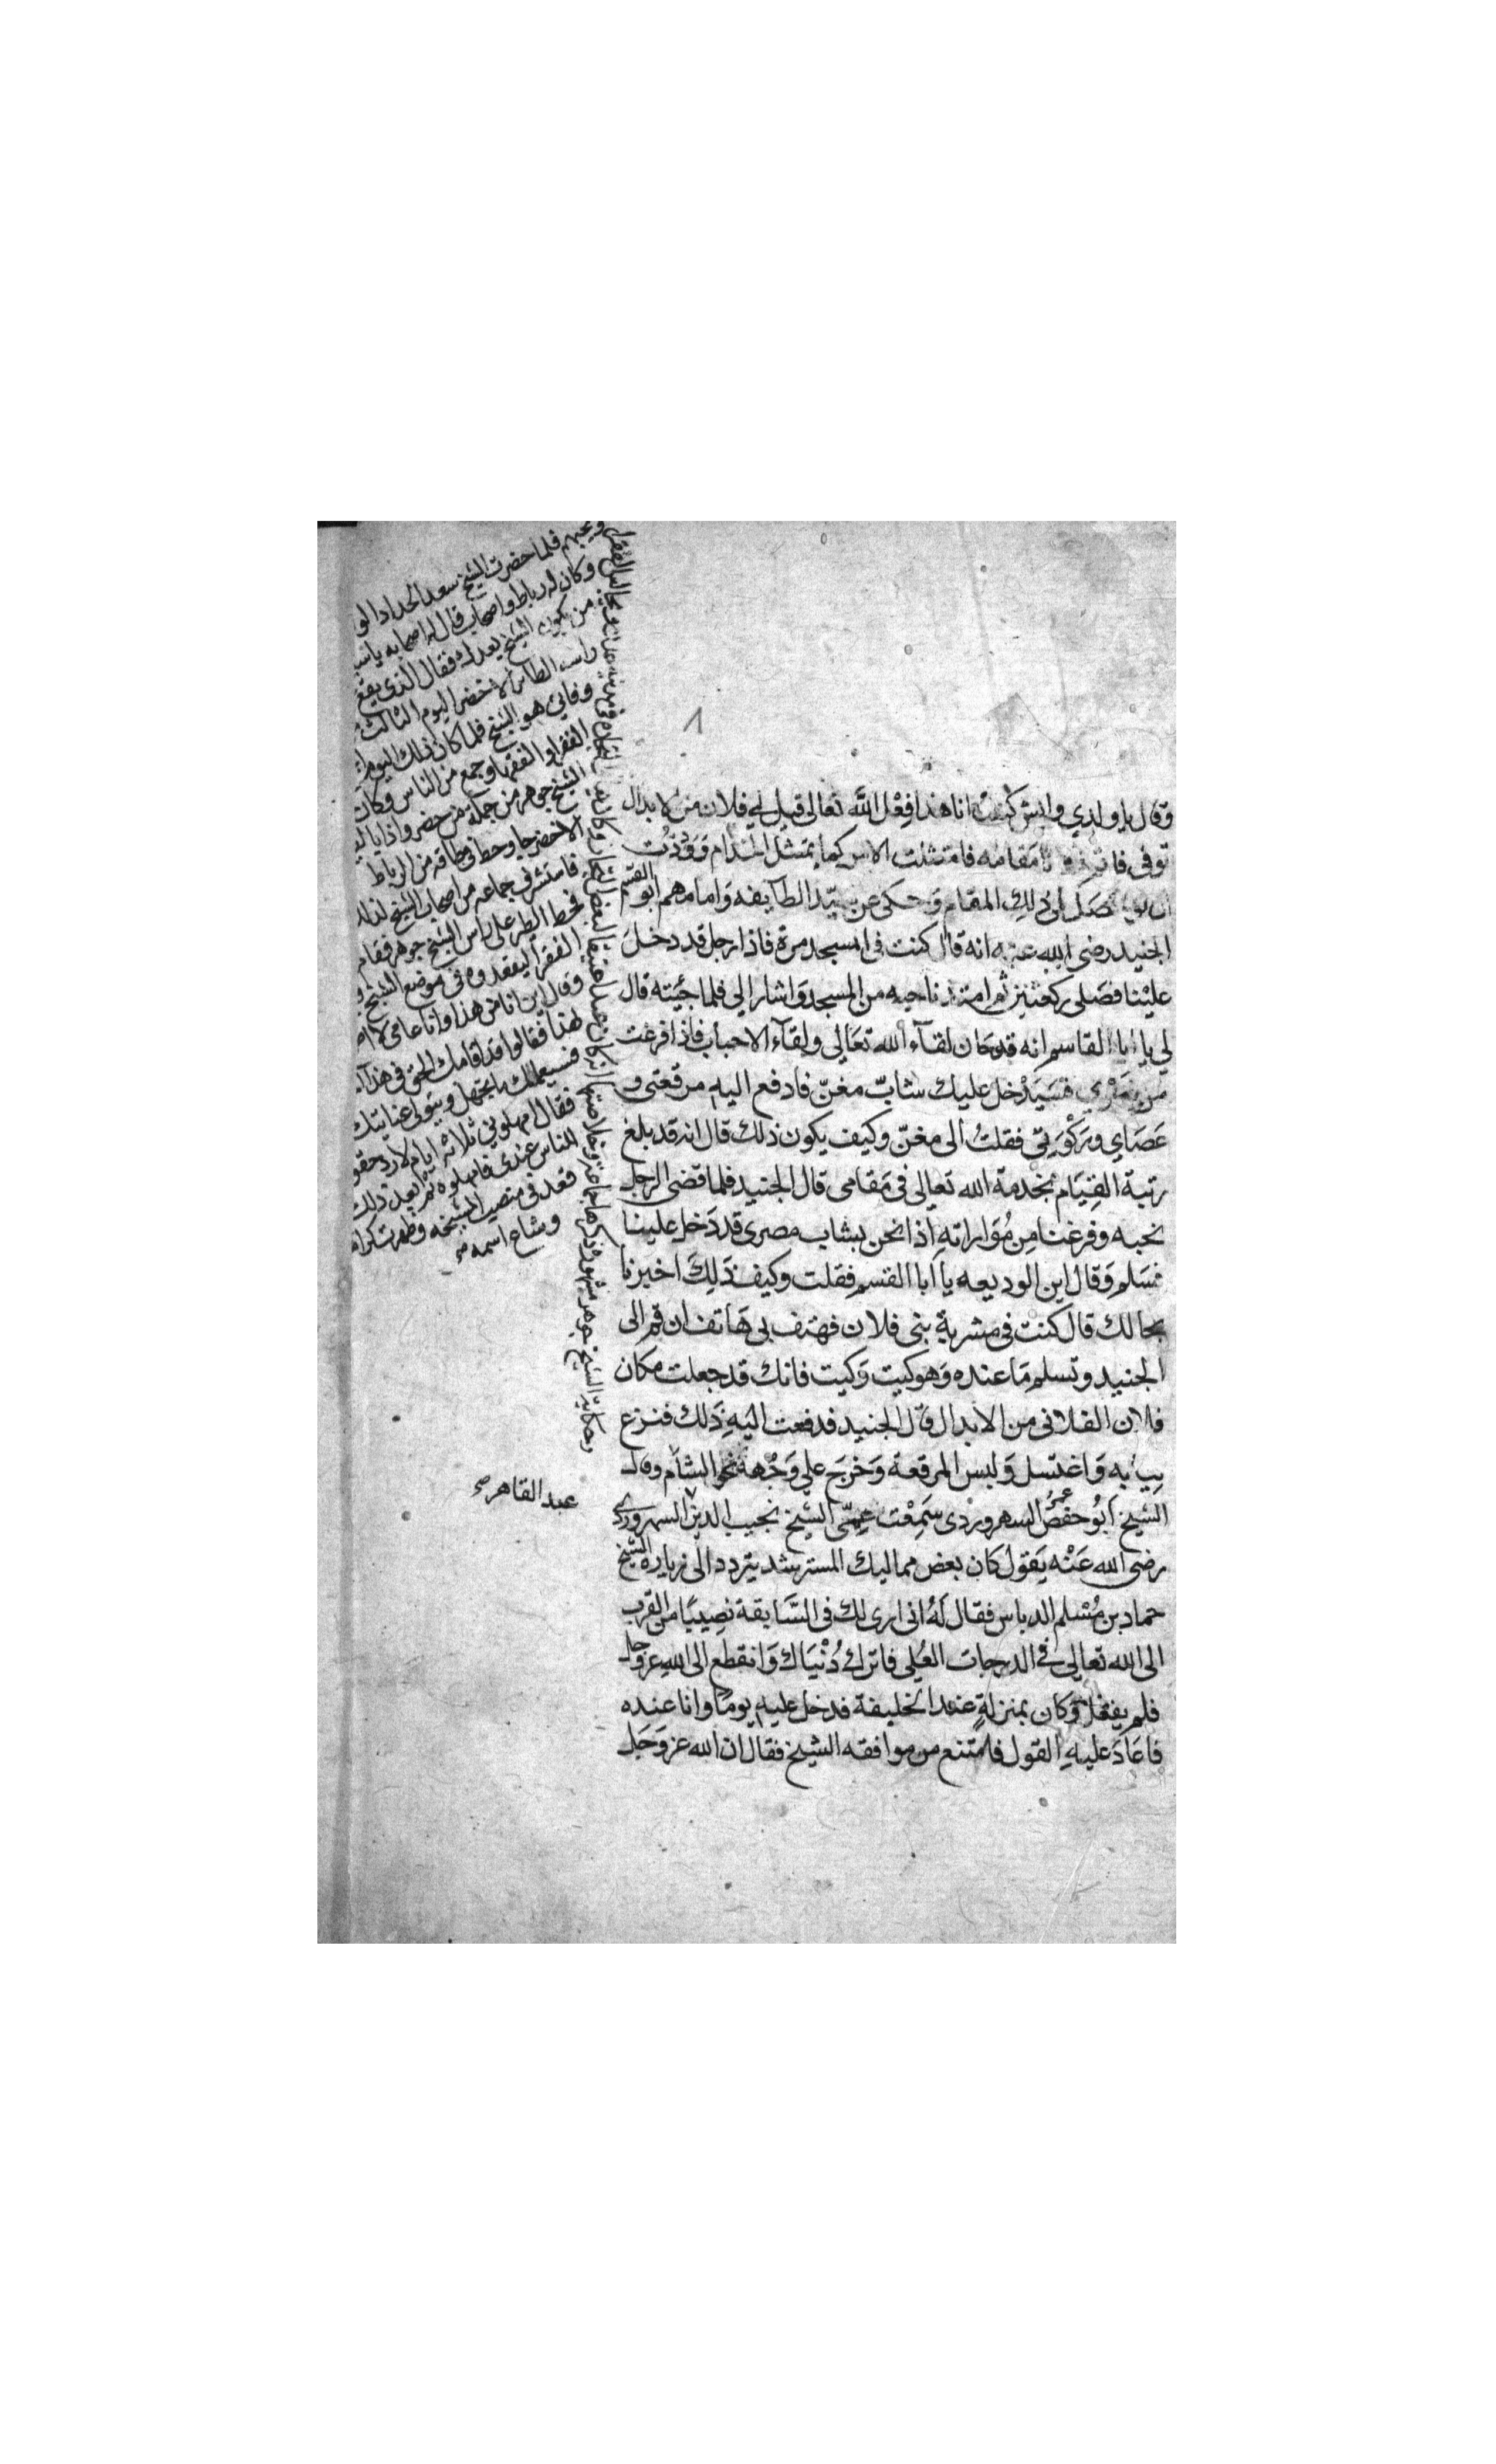 وقال يا ولدي وايش كنت انا هذا فعل الله تعالى قيل لي فلان من الابدال
توفي مقامه فامتثلت الامر كما يمتثل الخدام ووددت
ذلك المقام وحكى عن سيد الطايفه وامامهم ابو القسم
الجنيد رضي الله عنه انه قال كنت في المسجد مرة فاذا رجل قد دخل
علينا فصلى ركعتين ثم امتد ناحيه من المسجد واشار الي فلما جئته قال
لي يا ابا القاسم انه قد حان لقاء الله تعالى ولقاء الاحباب فاذا فرغت
من فسيدخل عليك شاب مغن فادفع اليه مرقعتي و
عصاي وركوتي فقلت الى مغن وكيف يكون ذلك قال انه قد بلغ
رتبة القيام بخدمة الله تعالى في مقامي قال الجنيد فلما قضى الرجل
نحبه وفرغنا من مواراته اذا نحن بشاب مصري قد دخل علينا
فسلم وقال اين الوديعه يا ابا القسم فقلت وكيف ذلك اخبرنا
بحالك قال كنت في مشربة بني فلان فهتف بي هاتف ان قم الى
الجنيد وتسلم ما عنده وهو كيت وكيت فانك قد جعلت مكان
فلان الفلاني من الابدال قال الجنيد فدفعت اليه ذلك فنزع
ثيابه واغتسل ولبس المرقعة وخرج على وجهه نحو الشام وقال
الشيخ ابو حفص عمر السهروردي سمعت عمي الشيخ نجيب الدين السهروردي
رضي الله عنه يقول كان بعض مماليك المسترشد يتردد الى زيارة الشيخ
حماد بن مسلم الدباس فقال له اني ارى لك في السابقة نصيبا من القرب
الى الله تعالى في الدرجات العلى فاترك دنياك وانقطع الى الله عز وجل
فلم يفعل وكان بمنزلة عند الخليفة فدخل عليه يوما وانا عنده
فاعاد عليه القول فامتنع من موافقه الشيخ فقال ان الله عز وجل
عبد القاهر صح
ويحبهم فلما حضرت الشيخ سعد الحداد
وكان له رباط واصحاب قال له اصحابه
من يكون الشيخ بعدك فقال الذي يقع
راسه الطائر الاخضر اليوم الثالث
وفاتي هو الشيخ فلما كان ذلك اليوم
الفقراء والفقهاء وجمع من الناس وكان
الشيخ جوهر من جملة من حضر واذا
الاخضر جا وحط في طاقه من الرباط
فاستشرف جماعه من اصحاب الشيخ لذلك
فحط الطير على راس الشيخ جوهر فقام
الفقرا ليقعدوه في موضع الشيخ
وقال اين انا من هذا وانا عامي
لهذا فقالوا قد اقامك الحق في هذا
فسيعلمك ما تجهل ويتولى عنايتك
فقال امهلوني ثلاثة ايام لارد حقوق
الناس عندي فامهلوه ثم بعد ذلك
قعد في منصب المشيخه وظهرت
وشاع اسمه صح
وحكاية الشيخ جوهر مشهوره ذكرها جماعة